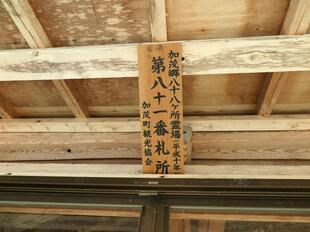 加茂郷八十八ケ所霊場（平成十年）
第八十一番札所
加茂町観光協会